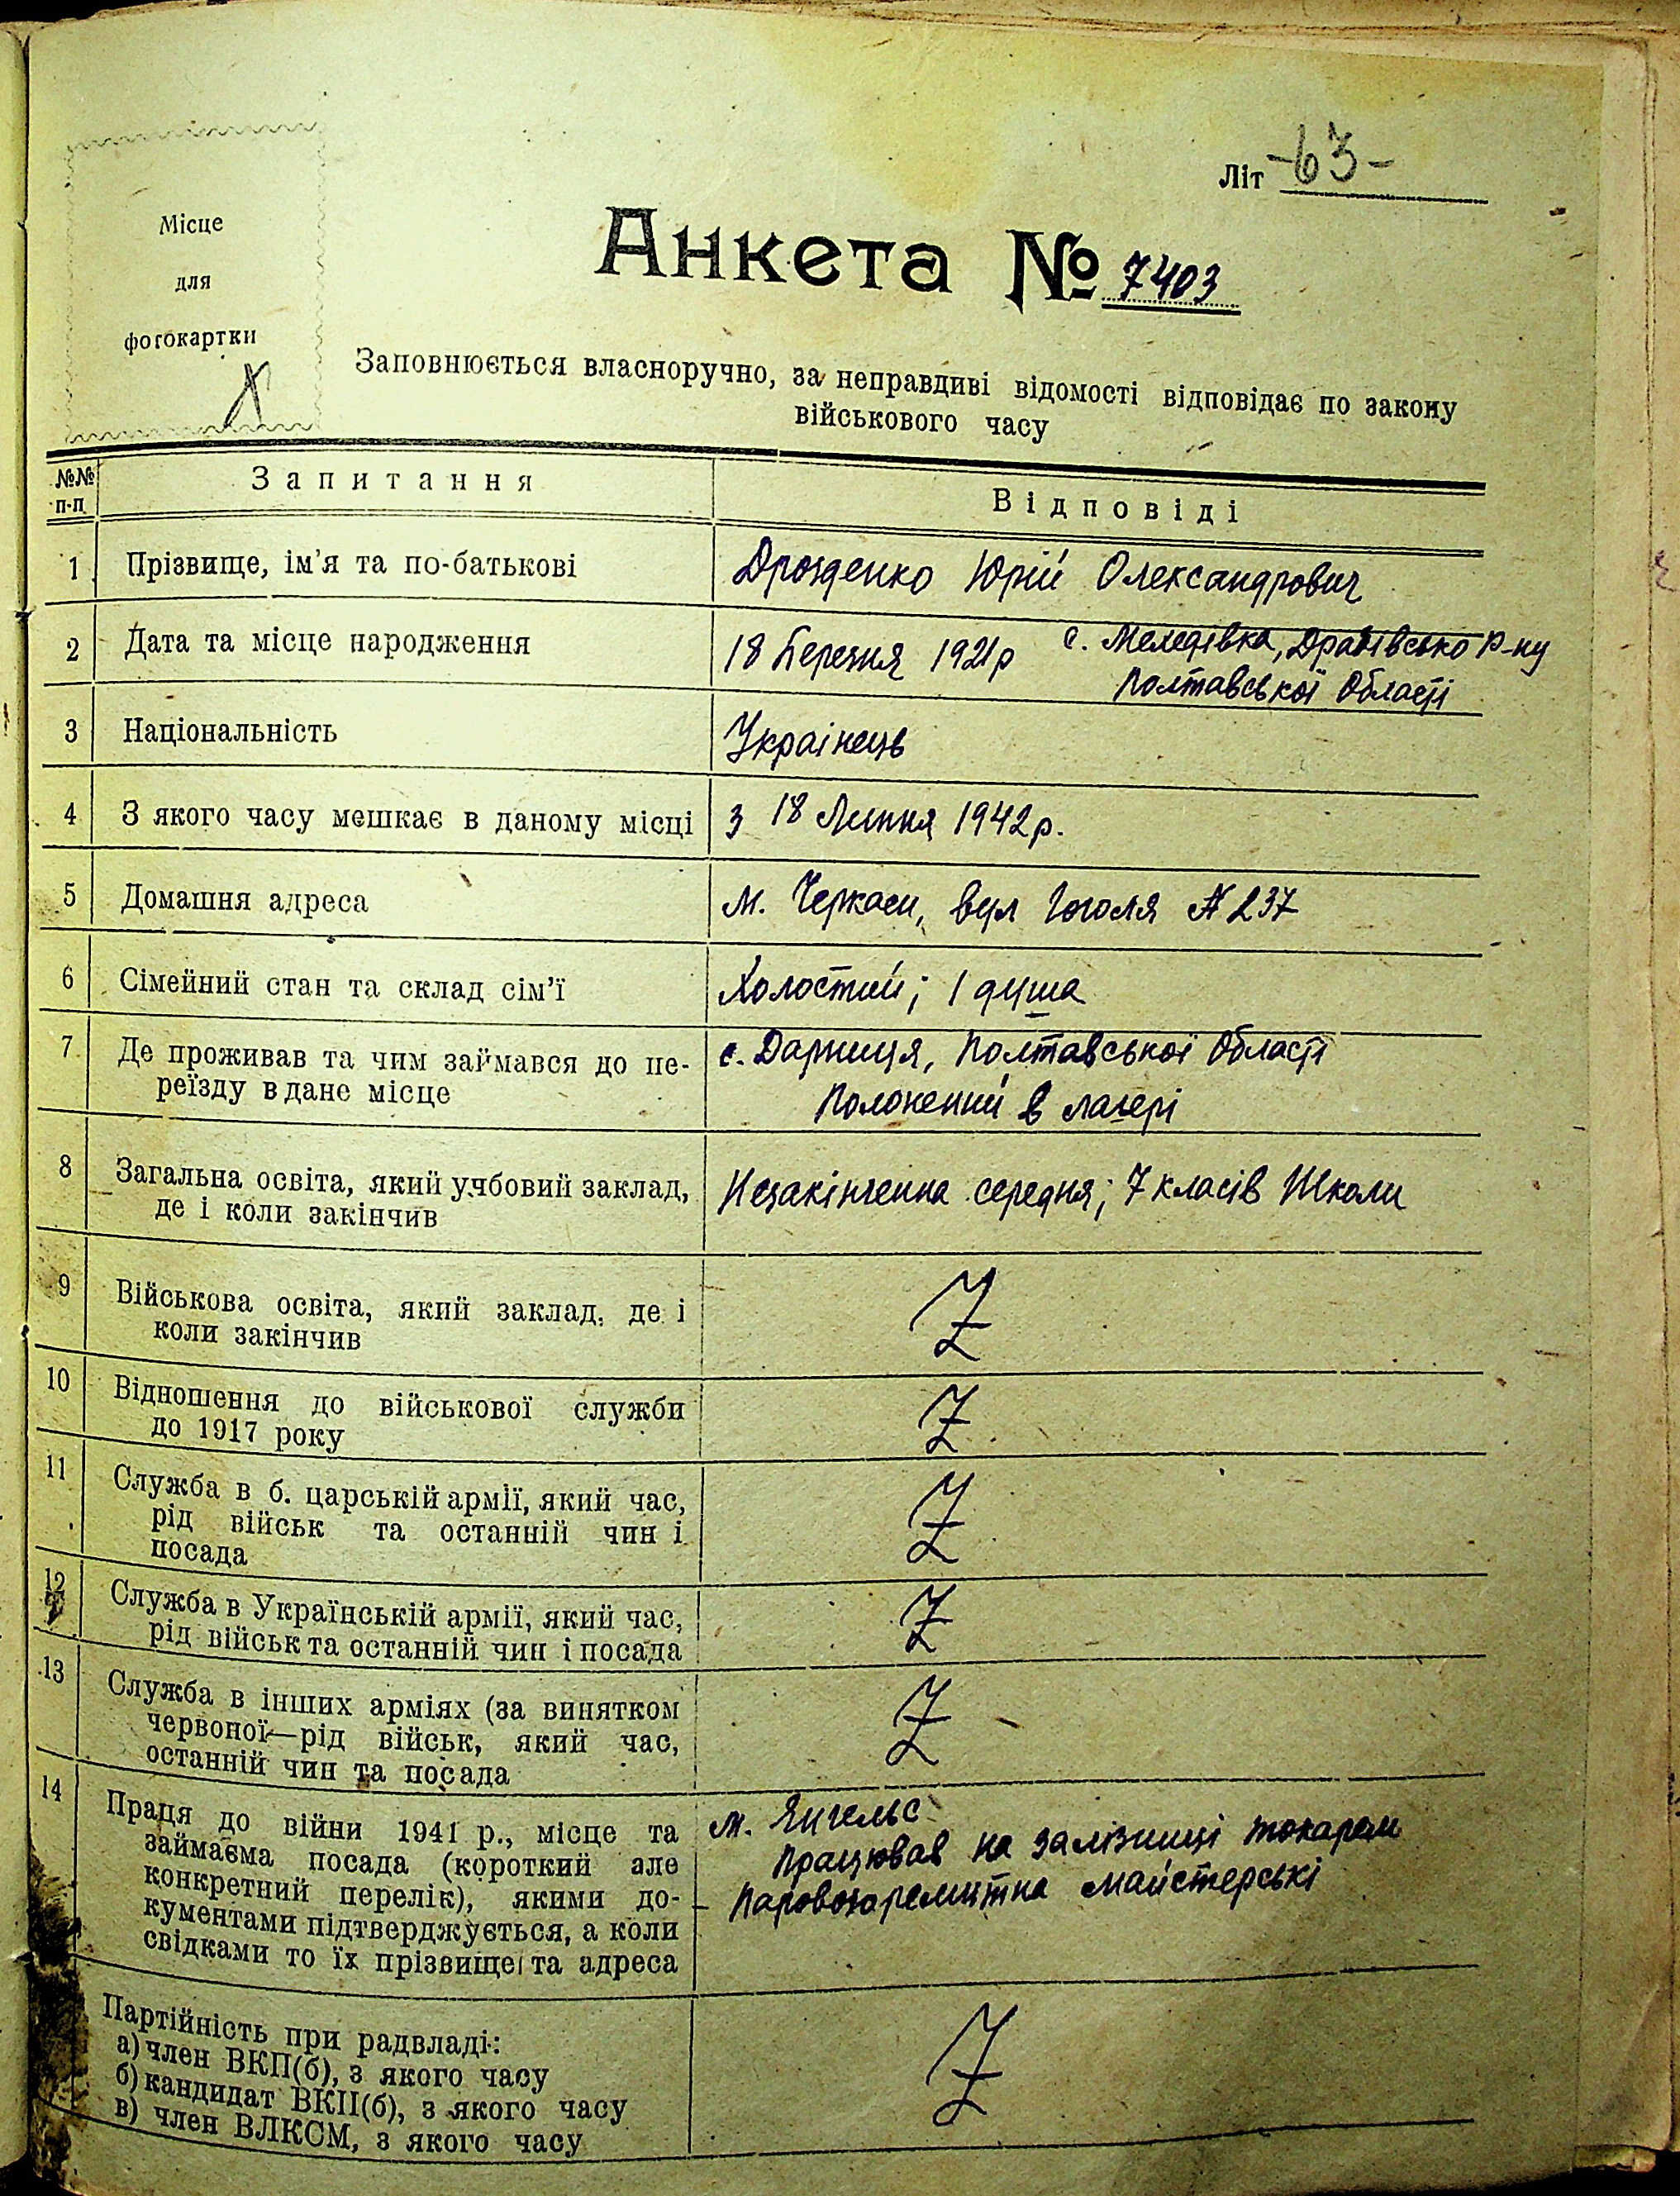 Літ -63-
Місце
для
фотокартки
Анкета № 7403
Заповнюється власноручно, за неправдиві відомості відповідає по закону
військового часу
№№
п-п
Запитання
Відповіді
1
Прізвище, ім'я та по-батькові
Дрозденко Юрій Олександрович
2
Дата та місце народження
18 Березня 1921р с. Меледівка, Драбівсько Р-ну
Полтавської Області
3
Національність
Українець
4
З якого часу мешкає в даному місці
з 18 Липня 1942р.
5
Домашня адреса
м. Черкаси, вул Гоголя № 237
6
Сімейний стан та склад сім'ї
Холостий; 1 душа
7
Де проживав та чим займався до пе-
реїзду в дане місце
с. Дарниця, Полтавської Області
Полонений в лагері
8
Загальна освіта, який учбовий заклад,
де і коли закінчив
Незакінченна середня; 7 класів Школи
9
Військова освіта, який заклад, де і
коли закінчив
Z
10
Відношення до військової служби
до 1917 року
Z
11
Служба в б. царській армії, який час,
рід військ та останній чин і
посада
Z
12
Служба в Українській армії, який час,
рід військ та останній чин і посада
Z
13
Служба в інших арміях (за винятком
червоної—рід військ, який час,
останній чин та посада
Z
14
Праця до війни 1941 р., місце та
займаєма посада (короткий але
конкретний перелік), якими до-
кументами підтверджується, а коли
свідками то їх прізвище та адреса
м. Янгельс
Працював на залізниці токарем
Паровозоремнтна майстерські
Партійність при радвладі:
а) член ВКП(б), з якого часу
б) кандидат ВКП(б), з якого часу
в) член ВЛКСМ, з якого часу
Z